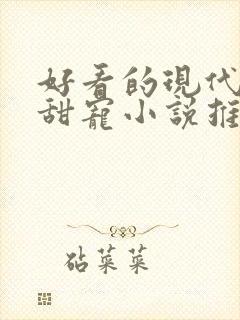 好看的現代
甜寵小說推
砧菜菜